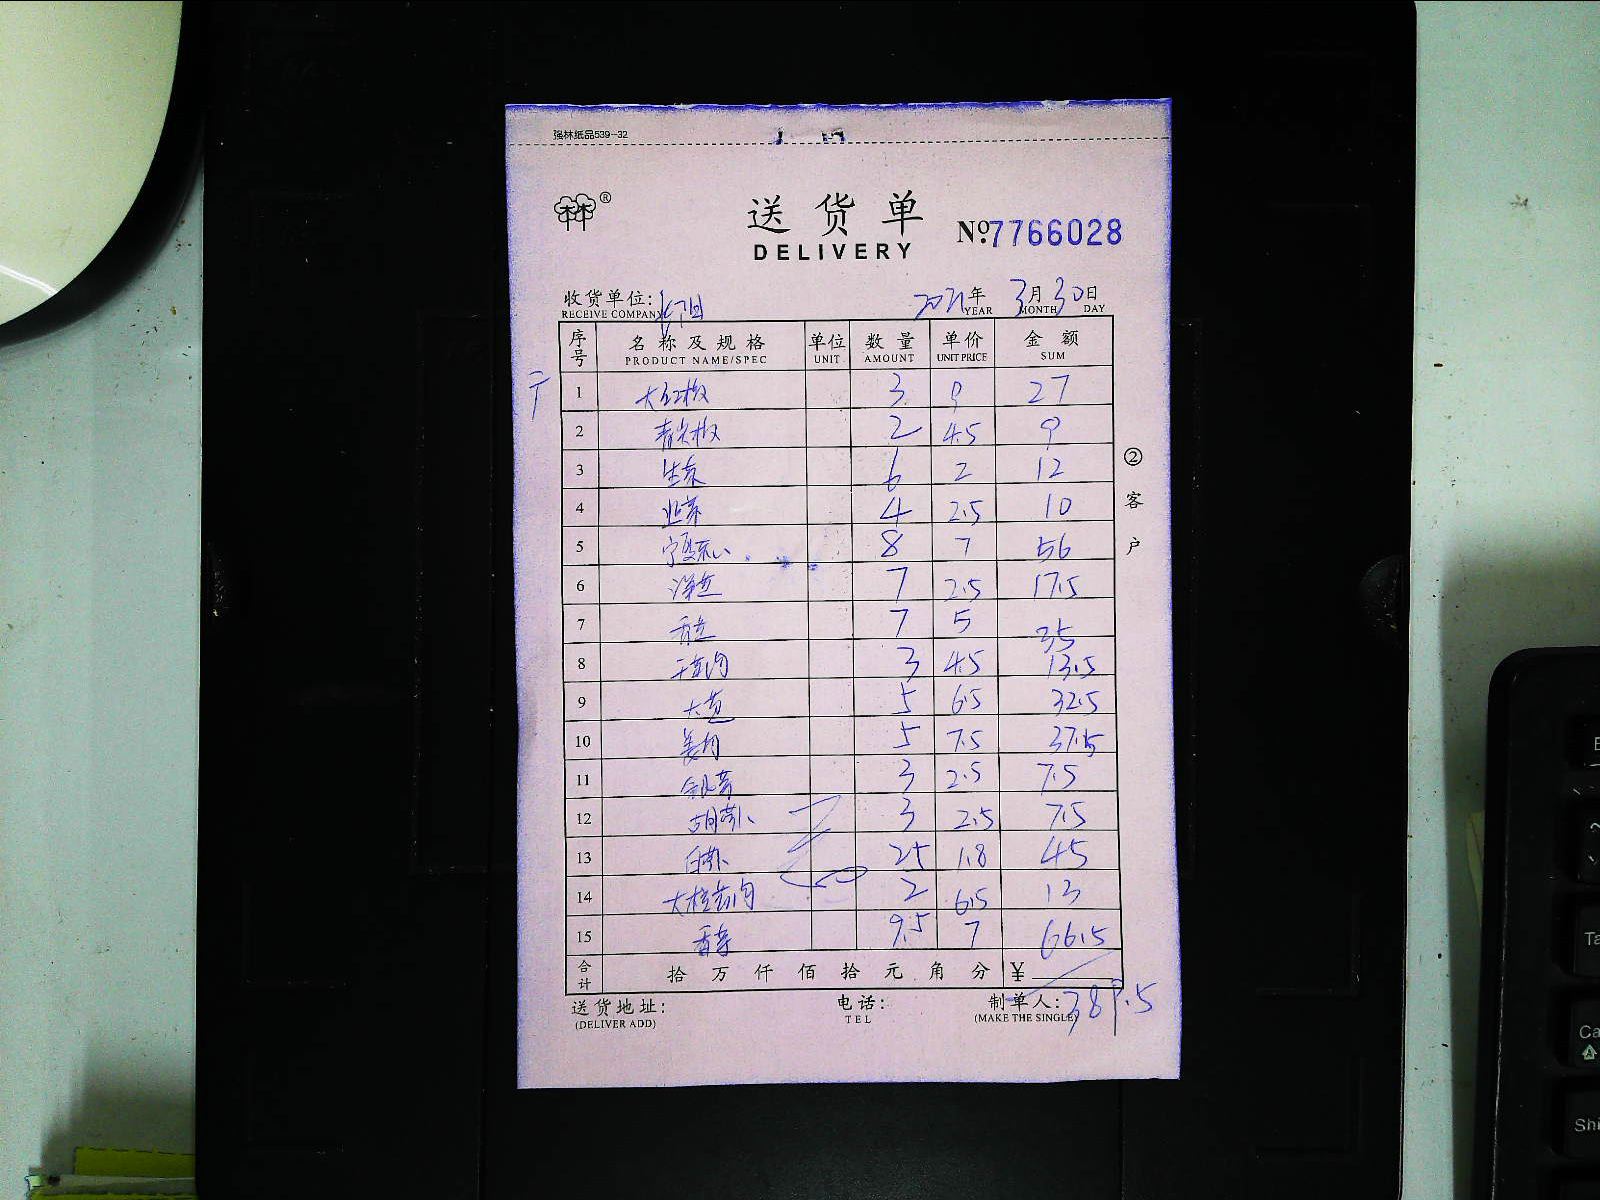 强林纸品539-32
林®
送货单
DELIVERY
Nº:7766028
收货单位:
RECEIVE COMPANY
2021年 3月30日
YEAR MONTH DAY
序号 名称及规格 单位 数量 单价 金额
PRODUCT NAME/SPEC UNIT AMOUNT UNIT PRICE SUM
1 大红椒 3 9 27
2 青尖椒 2 4.5 9
3 生菜 6 2 12
4 韭菜 4 2.5 10
5 宁夏菜心 8 7 56
6 洋芋 7 2.5 17.5
7 7 5 35
8 3 4.5 13.5
9 大葱 5 6.5 32.5
10 姜肉 5 7.5 37.5
11 银芽 3 2.5 7.5
12 胡萝卜 3 2.5 7.5
13 白萝卜 25 1.8 45
14 2 6.5 13
15 香芹 9.5 7 66.5
合计 拾万仟佰拾元角分 ¥
389.5
送货地址: 电话: 制单人:
(DELIVER ADD) TEL (MAKE THE SINGLE)
②客户